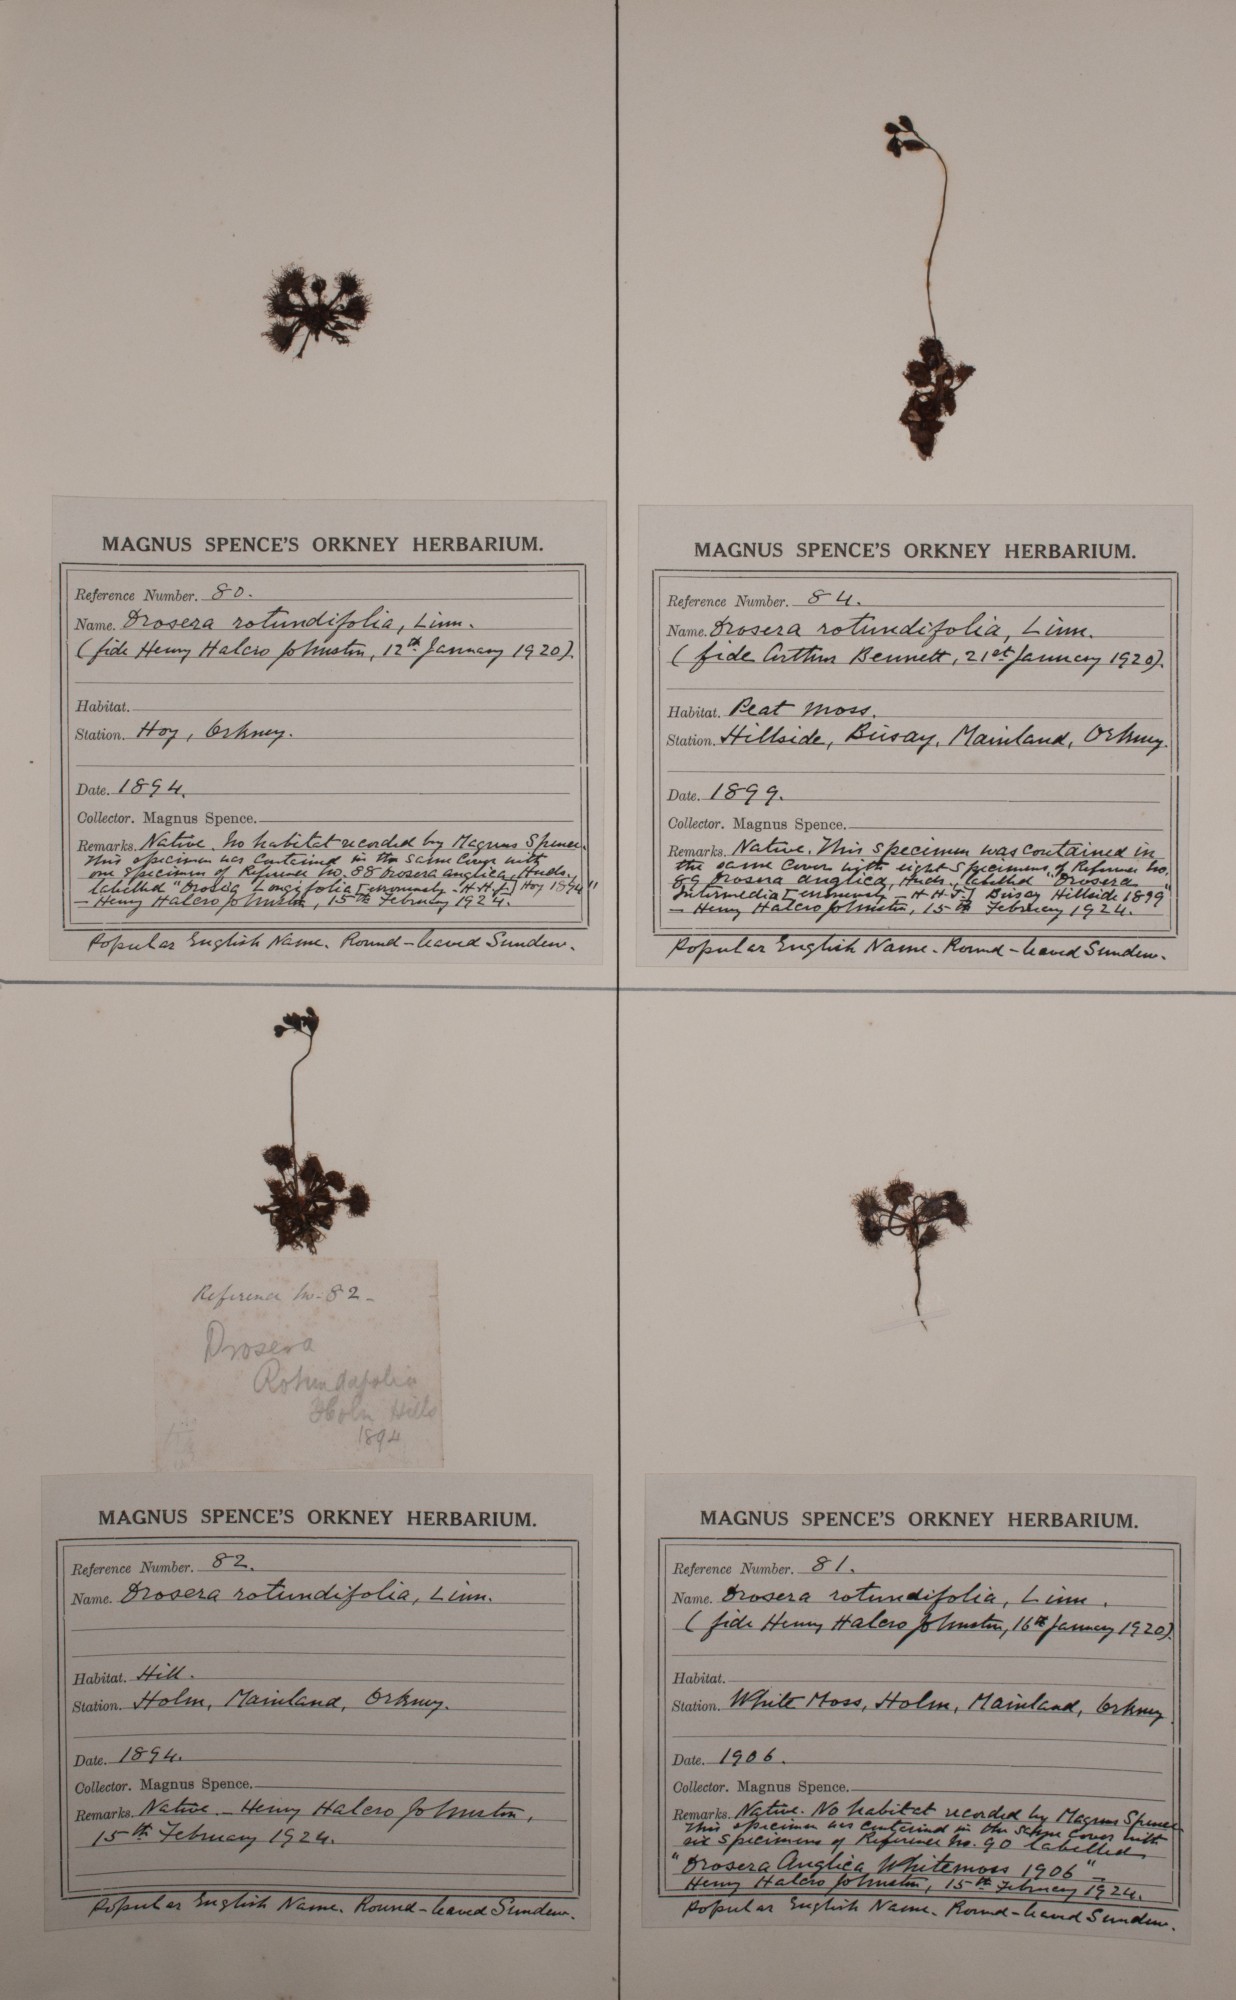 MAGNUS SPENCE'S ORKNEY HERBARIUM.
Reference Number. 80.
Name. Drosera rotundifolia, Linn.
(fide Henry Halcro Johnston, 12th January 1920).
Habitat.
Station. Hoy, Orkney.
Date. 1894.
Collector. Magnus Spence.
Remarks. Native. No habitat recorded by Magnus Spence.
This specimen was contained in the same cover with
one specimen of Reference No. 88 Drosera anglica, Huds.,
labelled "Drosera Longifolia [erroneously - H.H.J.] Hoy 1894"
— Henry Halcro Johnston, 15th February 1924.
Popular English Name. Round-leaved Sundew.
MAGNUS SPENCE'S ORKNEY HERBARIUM.
Reference Number. 84.
Name. Drosera rotundifolia, Linn.
(fide Arthur Bennett, 21st January 1920).
Habitat. Peat moss.
Station. Hillside, Birsay, Mainland, Orkney.
Date. 1899.
Collector. Magnus Spence.
Remarks. Native. This specimen was contained in
the same cover with eight specimens of Reference No.
89 Drosera anglica, Huds., labelled "Drosera
Intermedia [erroneously - H.H.J.] Birsay Hillside 1899"
— Henry Halcro Johnston, 15th February 1924.
Popular English Name. Round-leaved Sundew.
Reference No. 82 -
Drosera
Rotundafolia
Holm Hills
1894
MAGNUS SPENCE'S ORKNEY HERBARIUM.
Reference Number. 82.
Name. Drosera rotundifolia, Linn.
Habitat. Hill.
Station. Holm, Mainland, Orkney.
Date. 1894.
Collector. Magnus Spence.
Remarks. Native. — Henry Halcro Johnston,
15th February 1924.
Popular English Name. Round-leaved Sundew.
MAGNUS SPENCE'S ORKNEY HERBARIUM.
Reference Number. 81.
Name. Drosera rotundifolia, Linn.
(fide Henry Halcro Johnston, 16th January 1920).
Habitat.
Station. White Moss, Holm, Mainland, Orkney.
Date. 1906.
Collector. Magnus Spence.
Remarks. Native. No habitat recorded by Magnus Spence
This specimen was contained in the same cover with
six specimens of Reference No. 90 labelled
"Drosera Anglica Whitemoss 1906" —
Henry Halcro Johnston, 15th February 1924.
Popular English Name. Round-leaved Sundew.